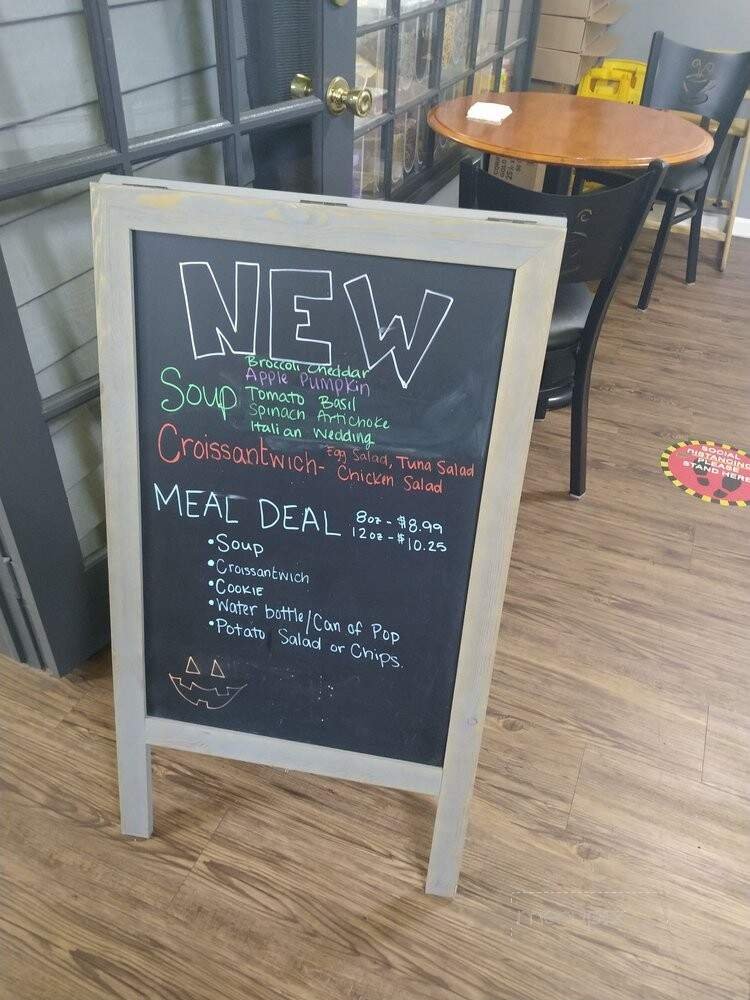 NEW
Broccoli Cheddar
Apple Pumpkin
Soup Tomato Basil
Spinach Artichoke
Italian Wedding
Croissantwich- Egg Salad, Tuna Salad
Chicken Salad
MEAL DEAL 8oz - $8.99
12oz - $10.25
•Soup
•Croissantwich
•Cookie
•Water bottle/Can of Pop
•Potato Salad or Chips.
SOCIAL
DISTANCING
PLEASE
STAND HERE